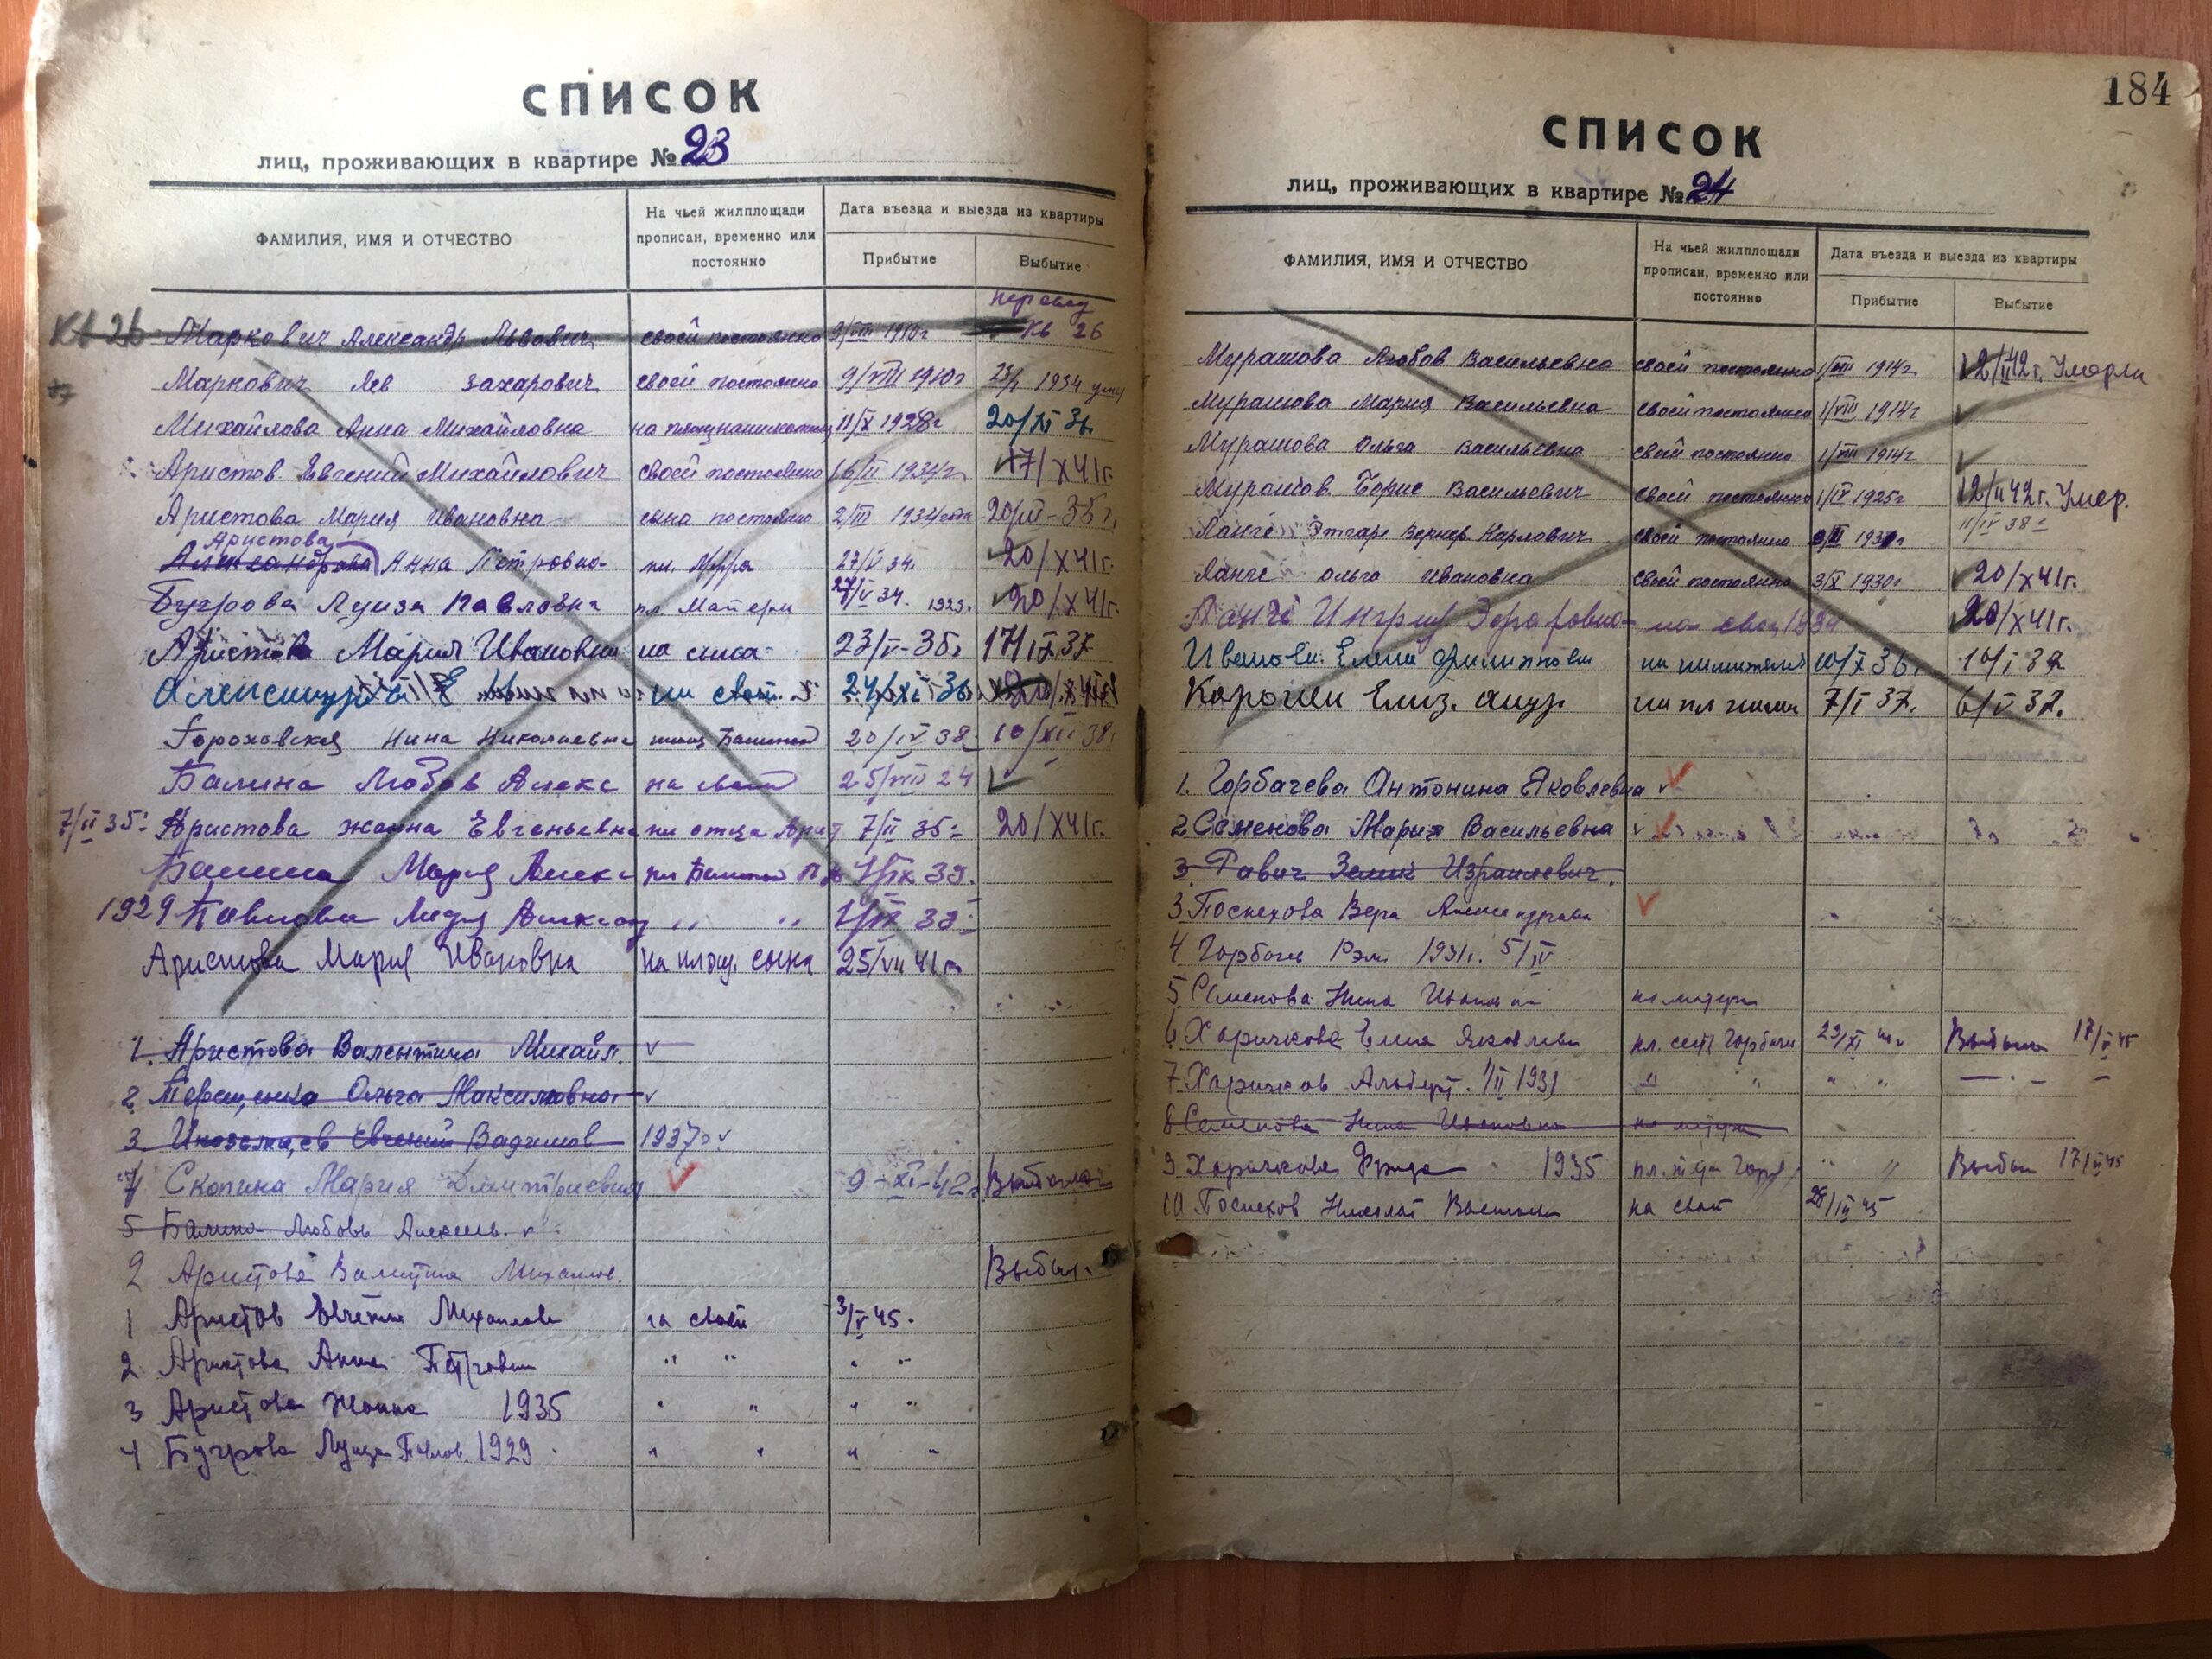 СПИСОК
лиц, проживающих в квартире № 23
ФАМИЛИЯ, ИМЯ И ОТЧЕСТВО
На чьей жилплощади прописан, временно или постоянно
Дата въезда и выезда из квартиры
Прибытие
Выбытие
перевед
Кв 26 Маркович Александр Львович своей постоянно 9/VIII 1910г кв 26
Маркович Лев Захарович своей постоянно 9/VIII 1910г 25/I 1934
Михайлова Анна Михайловна 11/X 1928г 20/XI 36.
Аристов Евгений Михайлович своей постоянно 16/II 1934г 17/X 41г.
Аристова Мария Ивановна сына постоянно 2/III 1934года
Аристова
Александрова Анна Петровна пл. 27/V 34. 20/X 41г.
Бугрова Луиза Павловна пл Матери 27/V 34. 1929г 20/X 41г.
Аристова Мария Ивановна на 23/V-36г 17/IX 37
24/XI 36
Гороховская Нина Николаевна 20/IV 38г 10/XII 38.
Балина Любовь Алекс на своей 25/VIII 24
7/II 35г Аристова Жанна Евгеньевна на отца Арист 7/II 35г 20/X 41г.
Балина Мария Алекс 1/IX 39.
1929 Лидия 1/IX 39
Аристова Мария Ивановна на площ. сына 25/VII 41г.
1. Аристова Валентина Михайл.
2. Ольга Максимовна
3. Иноземцев Евгений Вадимов 1937г
4 Скопина Мария Дмитриевна 9-XI-42г Выбыла
5 Балина Любовь Алексеев.
2 Аристова Валентина Михайлов. Выбыл.
1 Аристов Евгений Михайлов на своей 3/V 45.
2 Аристова Анна Петровн " " " "
3 Аристова Жанна 1935 " " " "
4 Бугрова Луиза Павлов. 1929 " " " "
184
СПИСОК
лиц, проживающих в квартире № 24
ФАМИЛИЯ, ИМЯ И ОТЧЕСТВО
На чьей жилплощади прописан, временно или постоянно
Дата въезда и выезда из квартиры
Прибытие
Выбытие
Мурашова Любов Васильевна своей постоянно 1/VIII 1914г 2/II 42г. Умерла
Мурашова Мария Васильевна своей постоянно 1/VIII 1914г
Мурашова Ольга Васильевна своей постоянно 1/VIII 1914г
Мурашов Борис Васильевич своей постоянно 1/IX 1925г 12/II 42г. Умер.
Ланге Этгарт Вернер Карлович своей постоянно 11/IV 38г
Ланге Ольга Ивановна своей постоянно 3/X 1930г 20/X 41г.
Ланге Ингрид 1934 20/X 41г.
Иванова Елена Филиппова 10/X 36г. 10/I 37
Елиз. 7/I 37. 6/V 37.
1. Горбачева Антонина Яковлевна
2 Семенова Мария Васильевна
3. Равич Израилевич.
3 Поспехова Вера Александровн
4 Горбачев Рэм 1931г. 5/IV
5 Семенова Нина Ивановна на матери
6 Харичкова Елена Яковлевн пл. сест Горбачев 29/XI 44г Выбыла 17/V 45
7 Харичков Альберт. 1/II 1931 " " " "
8 Семенова Нина Ивановна на матери
9 Харичкова Фрида 1935 " " Выбыл 17/V 45
10 Поспехов Николай Васильев на своей 28/III 45